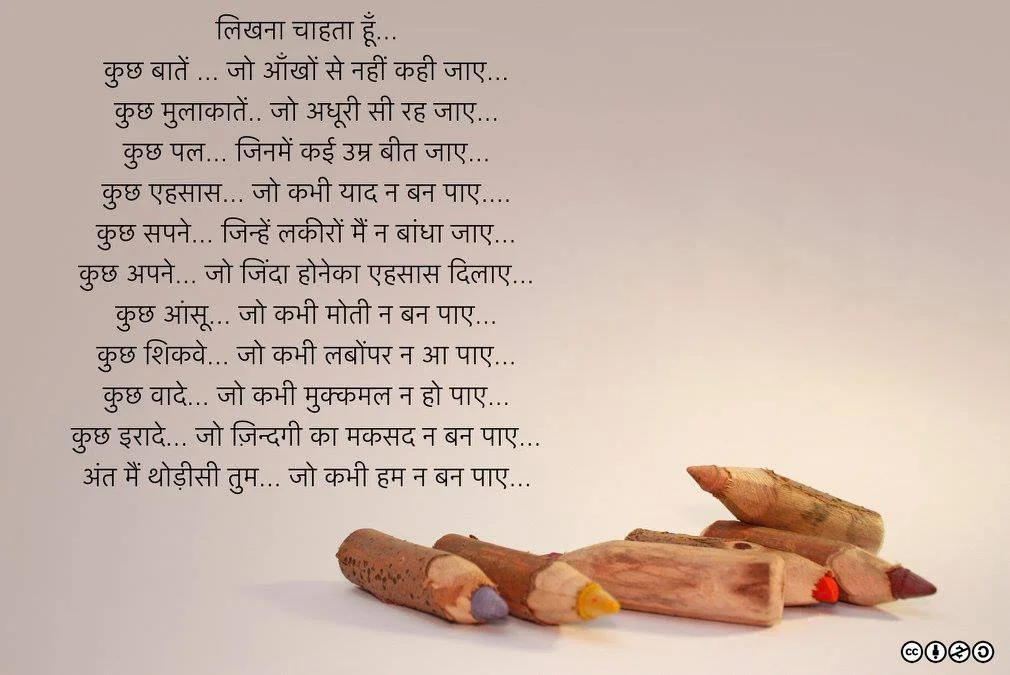 लिखना चाहता हूँ...
कुछ बातें ... जो आँखों से नहीं कही जाए...
कुछ मुलाकातें.. जो अधूरी सी रह जाए...
कुछ पल... जिनमें कई उम्र बीत जाए...
कुछ एहसास... जो कभी याद न बन पाए....
कुछ सपने... जिन्हें लकीरों मैं न बांधा जाए...
कुछ अपने... जो जिंदा होनेका एहसास दिलाए...
कुछ आंसू... जो कभी मोती न बन पाए...
कुछ शिकवे... जो कभी लबोंपर न आ पाए...
कुछ वादे... जो कभी मुक्कमल न हो पाए...
कुछ इरादे... जो ज़िन्दगी का मकसद न बन पाए...
अंत मैं थोड़ीसी तुम... जो कभी हम न बन पाए...
cc